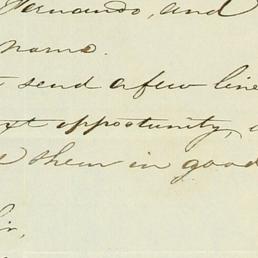 Fernando, and
name.
send a few line
opportunity,
them in good